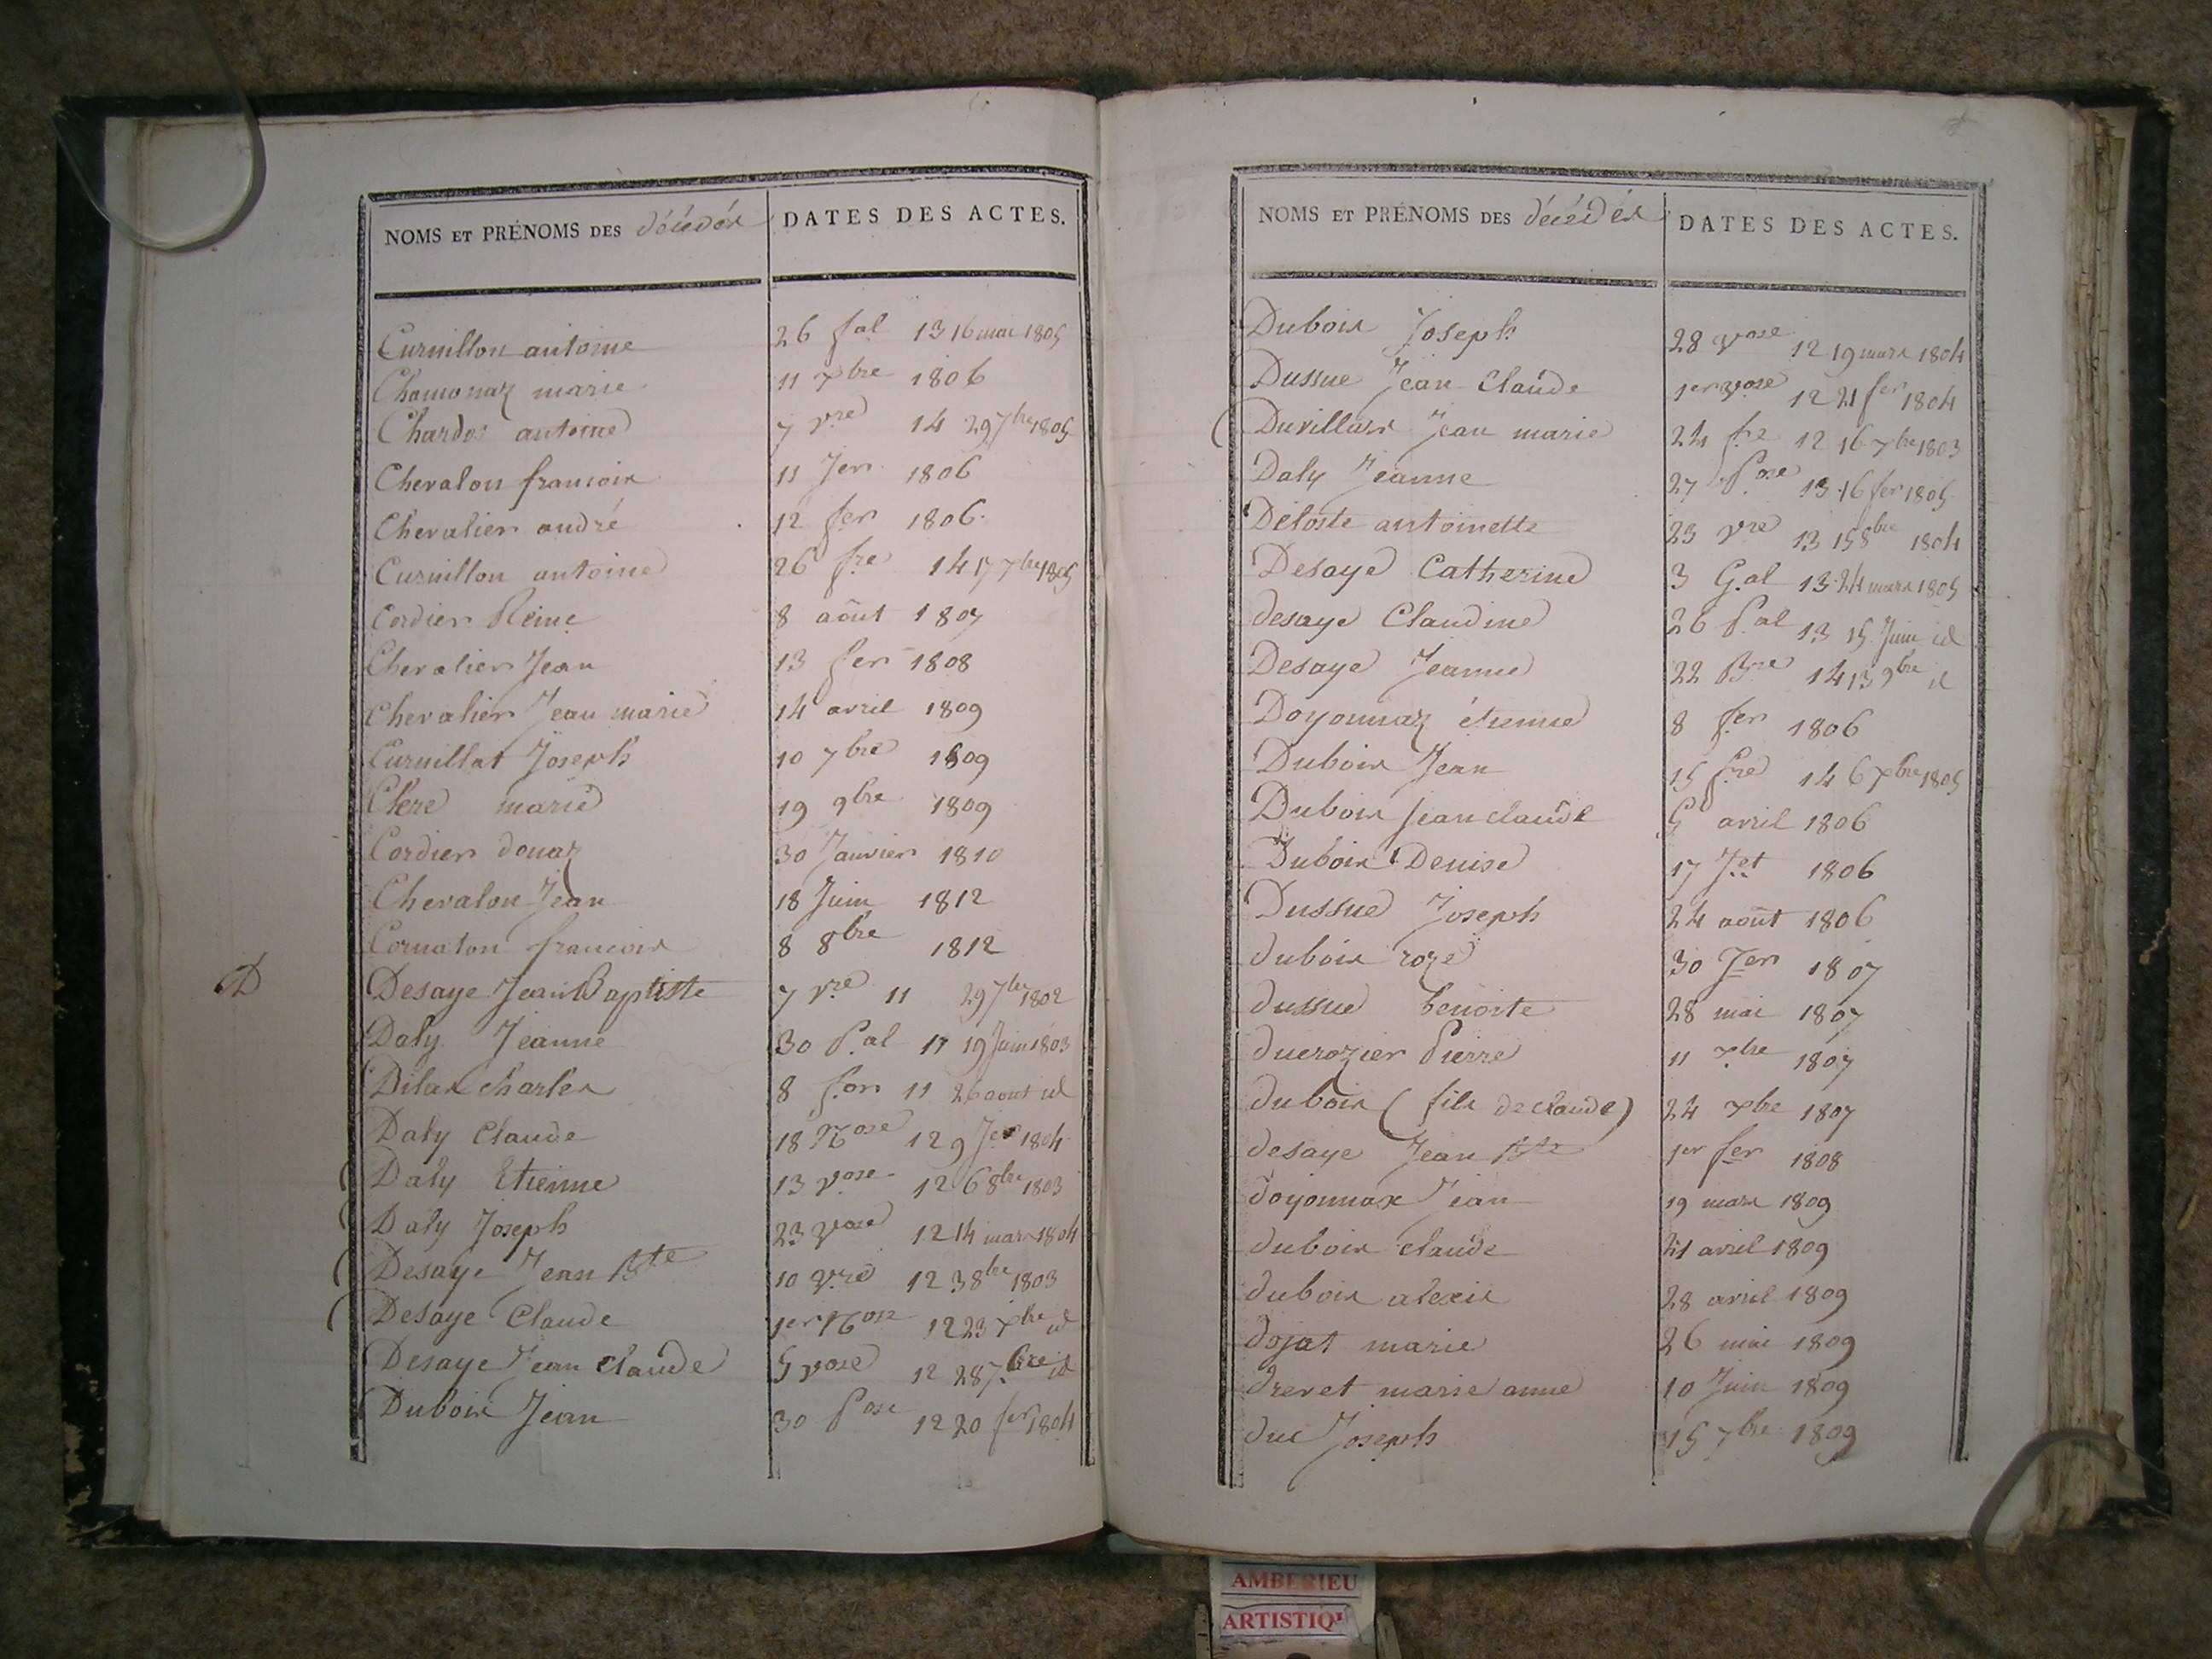 NOMS ET PRÉNOMS DES décédés DATES DES ACTES.
Curnillon antoine 26 f.al 13 16 mai 1805
Chamonaz marie 11 xbre 1806
Chardos antoine 7 vre 14 29 7bre 1805
Chevalon francois 11 Jer 1806
Chevalier andré 12 fer 1806
Curnillon antoine 26 fre 14 17 xbre 1805
Cordier Reine 8 août 1807
Chevalier Jean 13 fer 1808
Chevalier Jean marie 14 avril 1809
Curnillat Joseph 10 7bre 1809
Clere marie 19 9bre 1809
Cordier donaz 30 Janvier 1810
Chevalon Jean 18 Juin 1812
Cornaton francois 8 8bre 1812
D
Desaye Jean Baptiste 7 vre 11 29 7bre 1802
Daly Jeanne 30 P.al 11 19 Juin 1803
Dilas charles 8 for 11 26 aout id
Daly Claude 18 Nose 12 9 Jer 1804
Daly Etienne 13 vose 12 6 8bre 1803
Daly Joseph 23 vose 12 14 mars 1804
Desaye Jean Bte 10 vre 12 3 8bre 1803
Desaye Claude 1er Nose 12 23 xbre id
Desaye Jean Claude 5 vose 12 28 7bre id
Dubois Jean 30 Pose 12 20 fer 1804
NOMS ET PRÉNOMS DES décédés DATES DES ACTES.
Dubois Joseph 28 vose 12 19 mars 1804
Dussue Jean Claude 1er vose 12 21 fer 1804
Duvillars Jean marie 24 fre 12 16 xbre 1803
Daly Jeanne 27 Pose 13 16 fer 1805
Deloste antoinette 23 vre 13 15 8bre 1804
Desaye Catherine 3 G.al 13 24 mars 1805
desaye Claudine 26 P.al 13 15 Juin id
Desaye Jeanne 22 Bre 14 13 9bre id
Doyonnaz étienne 8 fer 1806
Dubois Jean 15 fre 14 6 xbre 1805
Dubois Jean claude 5 avril 1806
Dubois Denise 17 Jet 1806
Dussue Joseph 24 août 1806
dubois roze 30 Jer 1807
dussue benoite 28 mai 1807
ducrozier Pierre 11 xbre 1807
dubois (fils de claude) 24 xbre 1807
desaye Jean Bte 1er fer 1808
doyonnax Jean 19 mars 1809
dubois claude 21 avril 1809
dubois alexis 28 avril 1809
dojat marie 26 mai 1809
drevet marie anne 10 Juin 1809
duc Joseph 15 7bre 1809
AMBERIEU
ARTISTIQ